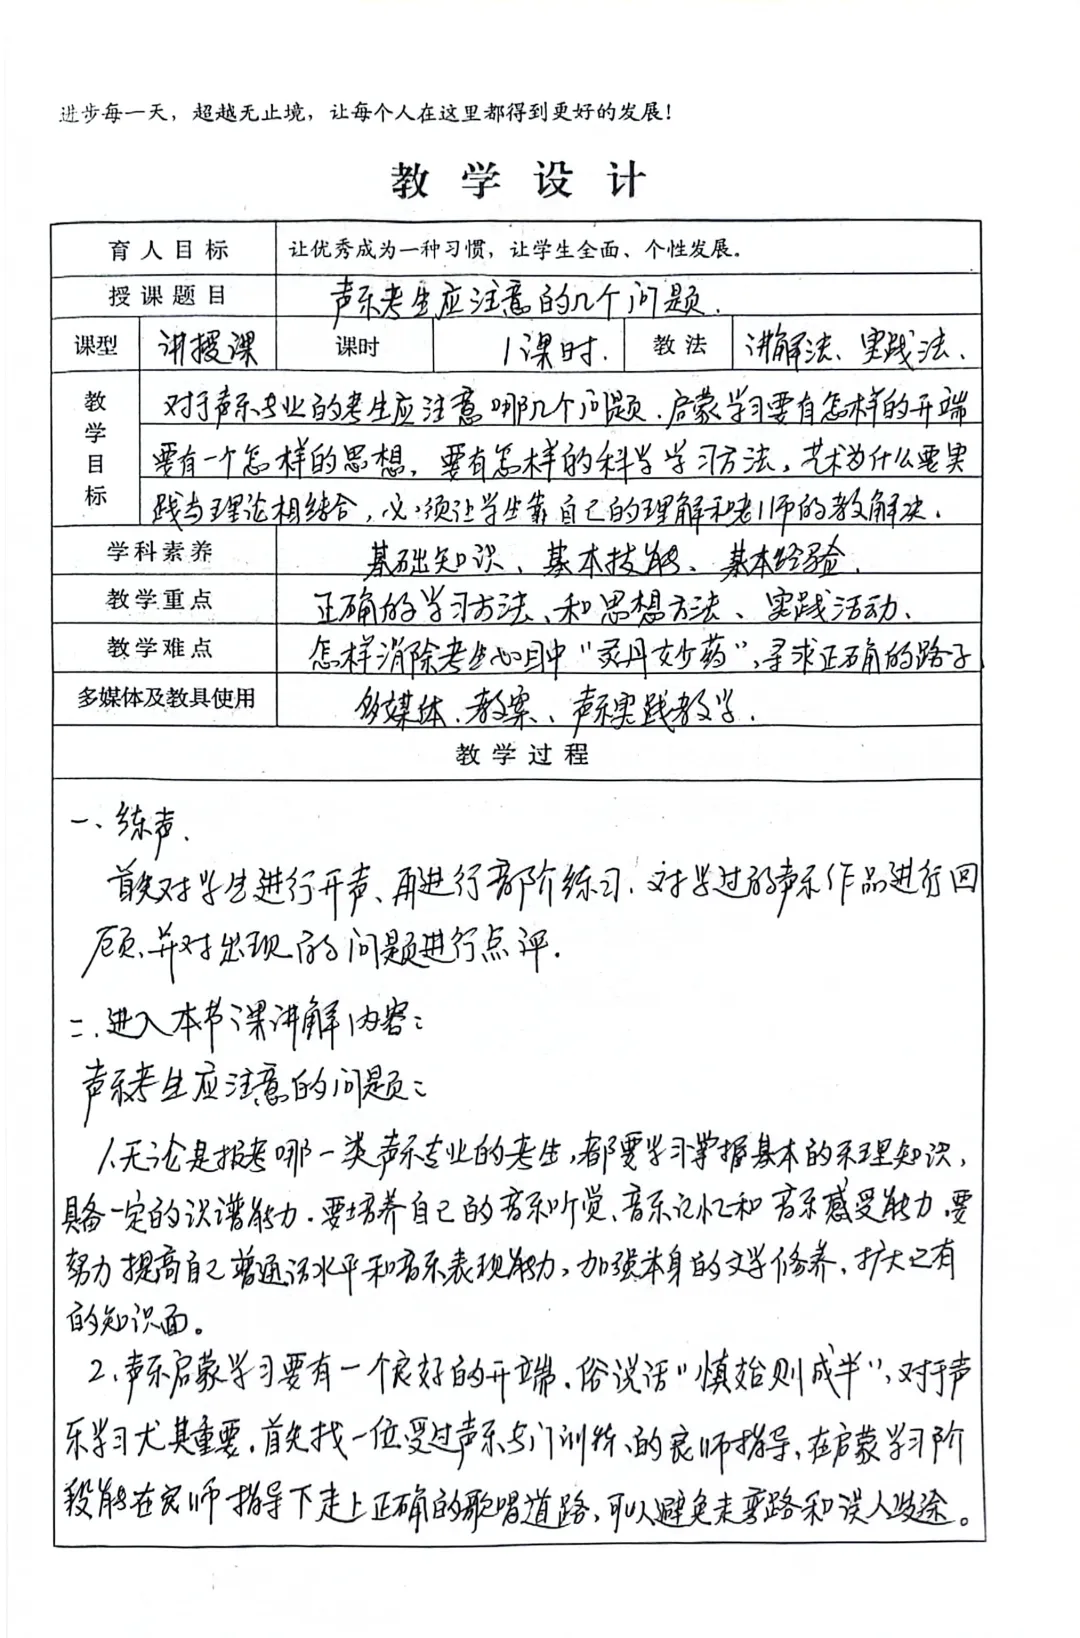 进步每一天，超越无止境，让每个人在这里都得到更好的发展！
教学设计
育人目标 让优秀成为一种习惯，让学生全面、个性发展。
授课题目 声乐考生应注意的几个问题.
课型 讲授课 课时 1课时. 教法 讲解法、实践法、
教学目标
对于声乐专业的考生应注意哪几个问题.启蒙学习要有怎样的开端
要有一个怎样的思想，要有怎样的科学学习方法，艺术为什么要实
践与理论相结合，必须让学生靠自己的理解和老师的教解决.
学科素养 基础知识、基本技能、基本经验.
教学重点 正确的学习方法、和思想方法、实践活动、
教学难点 怎样消除考生心目中“灵丹妙药”，寻求正确的路子
多媒体及教具使用 多媒体、教案、声乐实践教学.
教学过程
一、练声.
首先对学生进行开声、再进行音阶练习.对学过的声乐作品进行回
顾.并对出现的问题进行点评.
二.进入本节课讲解内容：
声乐考生应注意的问题：
1.无论是报考哪一类声乐专业的考生，都要学习掌握基本的乐理知识，
具备一定的识谱能力.要培养自己的音乐听觉、音乐记忆和音乐感受能力，要
努力提高自己普通话水平和音乐表现能力，加强本身的文学修养，扩大己有
的知识面。
2.声乐启蒙学习要有一个良好的开端.俗说话“慎始则成半”，对于声
乐学习尤其重要.首先找一位受过声乐专门训练的良师指导，在启蒙学习阶
段能在良师指导下走上正确的歌唱道路，可以避免走弯路和误入歧途。